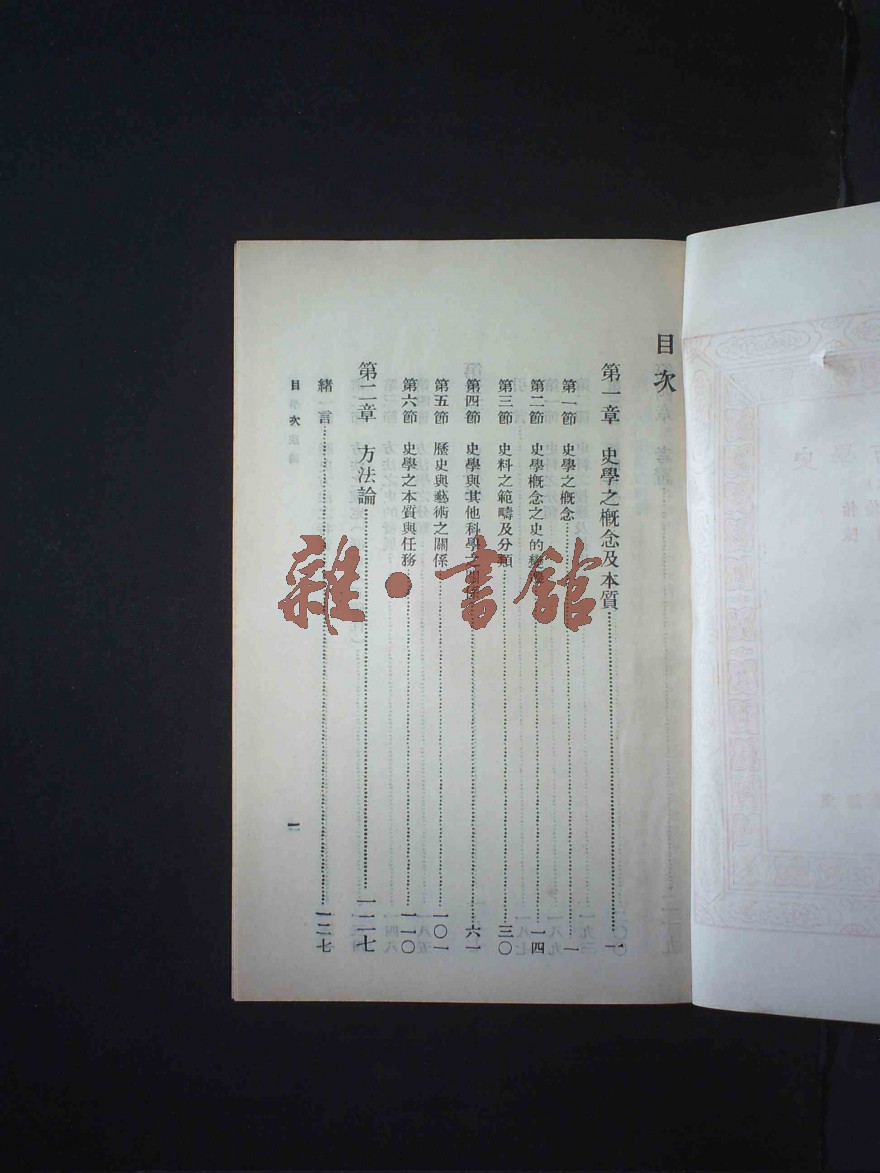 目次
第一章 史學之概念及本質……一
第一節 史學之概念……一
第二節 史學概念之史的……一四
第三節 史料之範疇及分類……三〇
第四節 史學與其他科學之……六一
第五節 歷史與藝術之關係……一〇一
第六節 史學之本質與任務……一一〇
第二章 方法論……一二七
緒言……一二七
目次
一
雜·書館